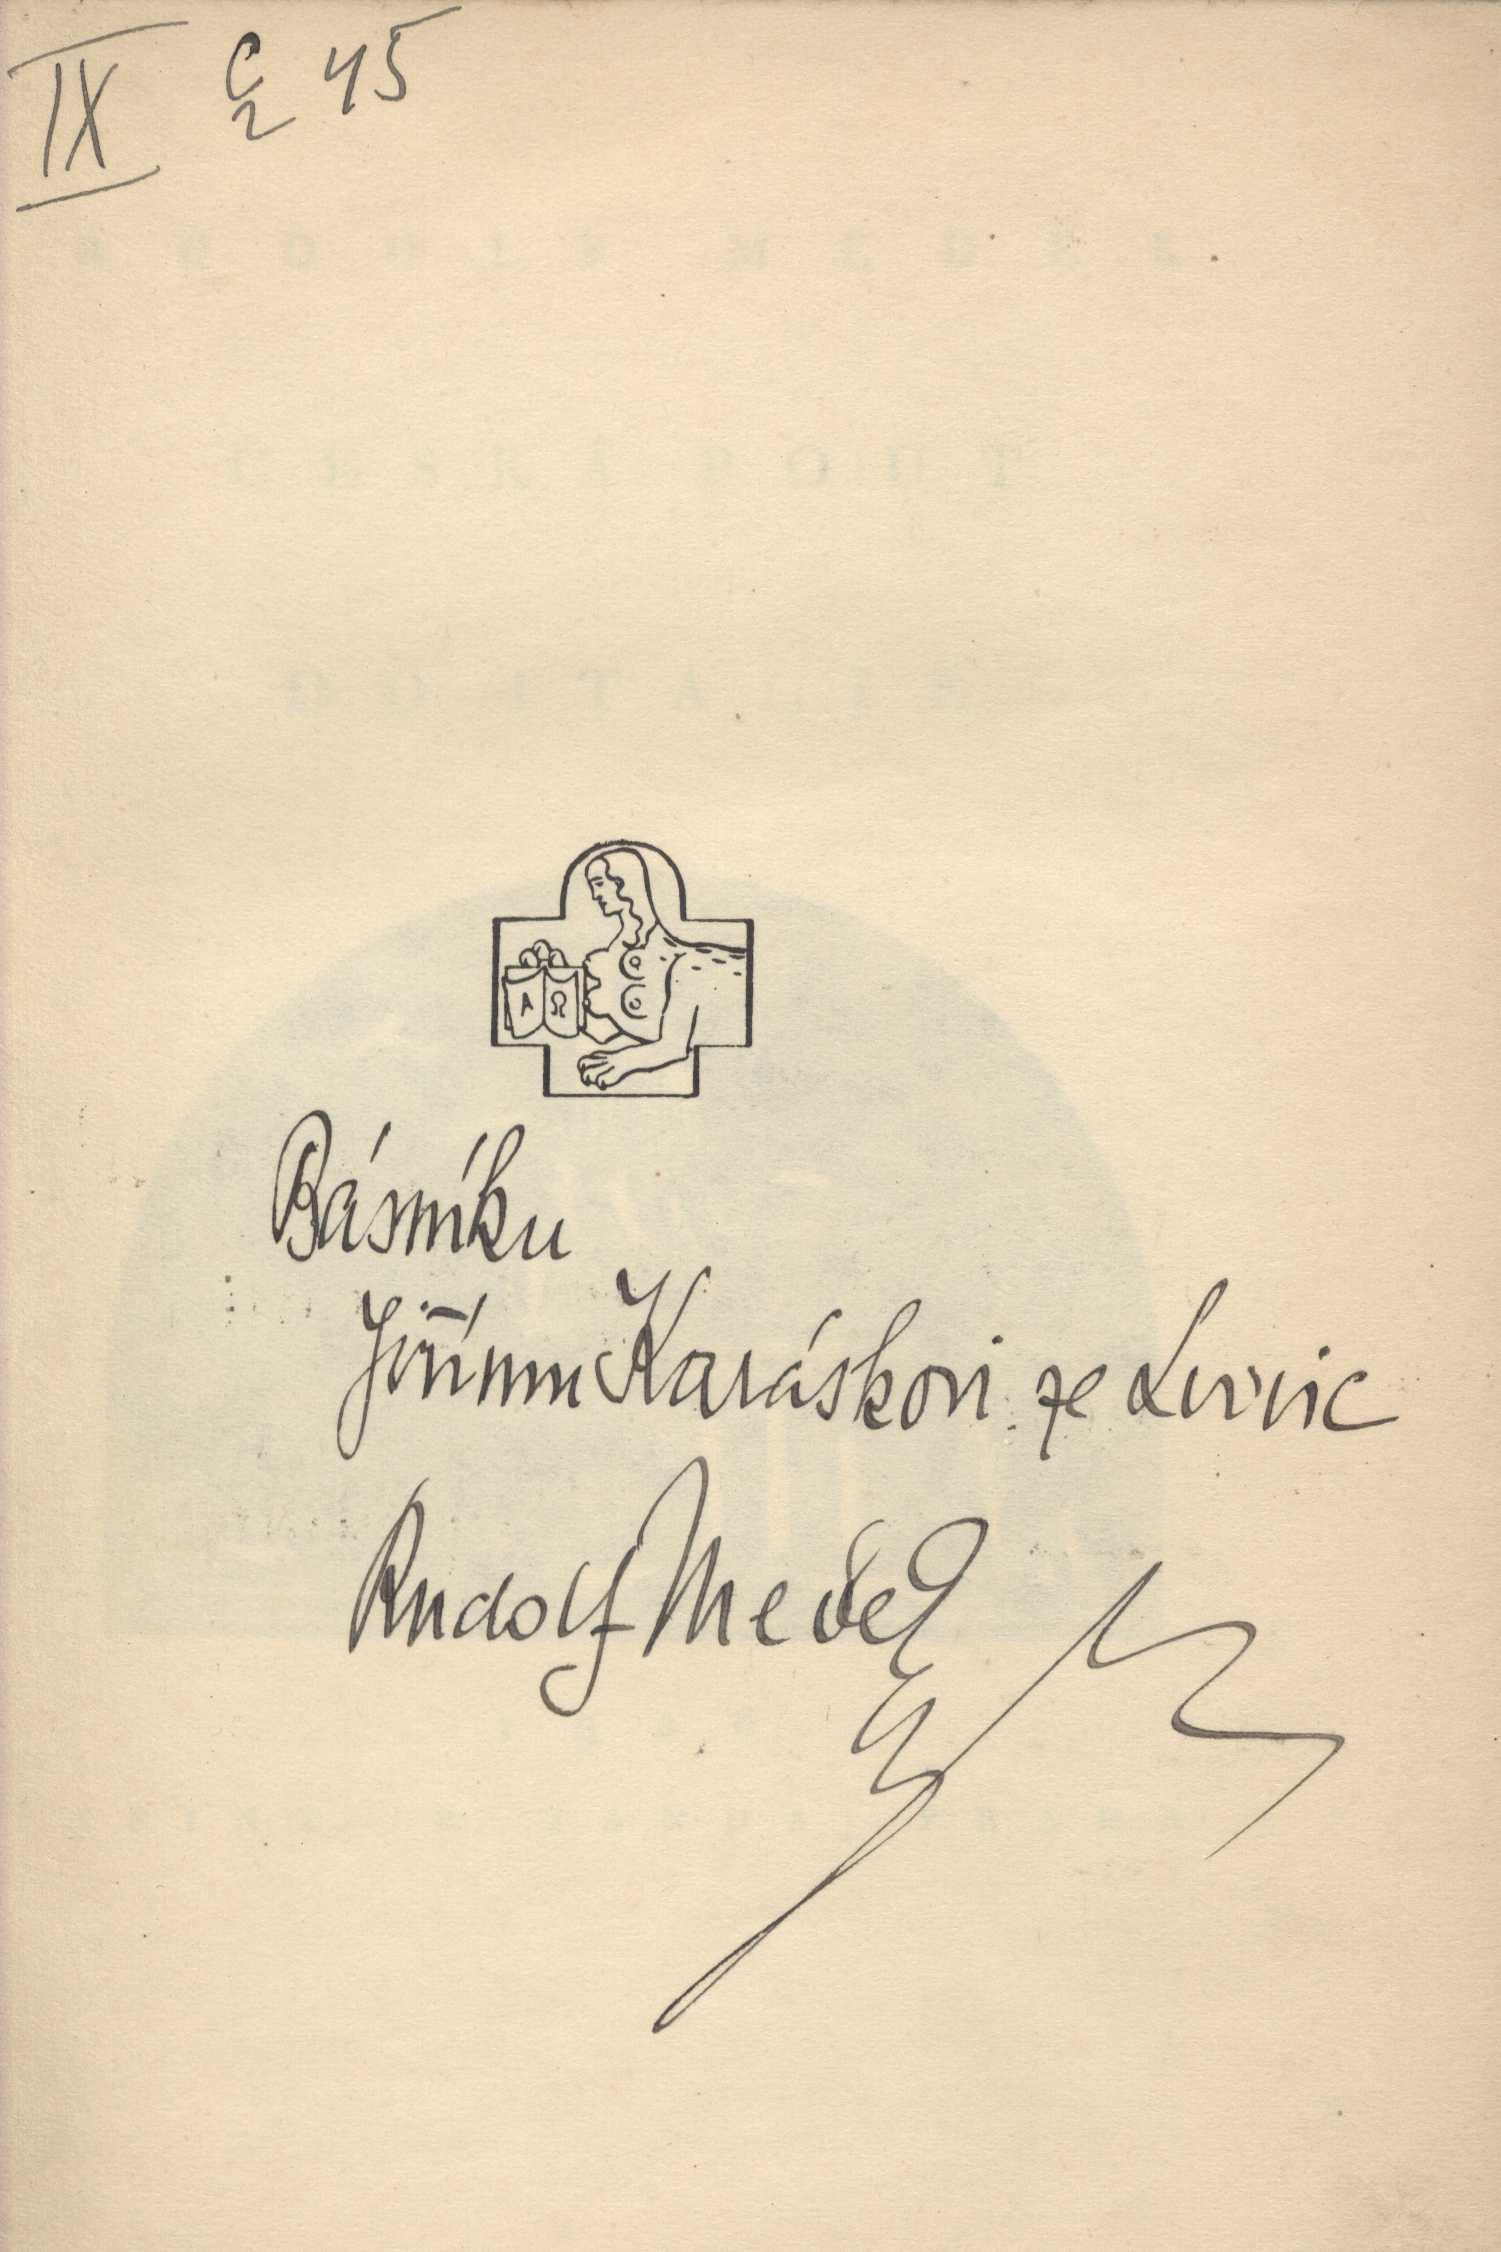 IX C2 45
Α Ω
Básníku
Jiřímu Karáskovi ze Lvovic
Rudolf Medek